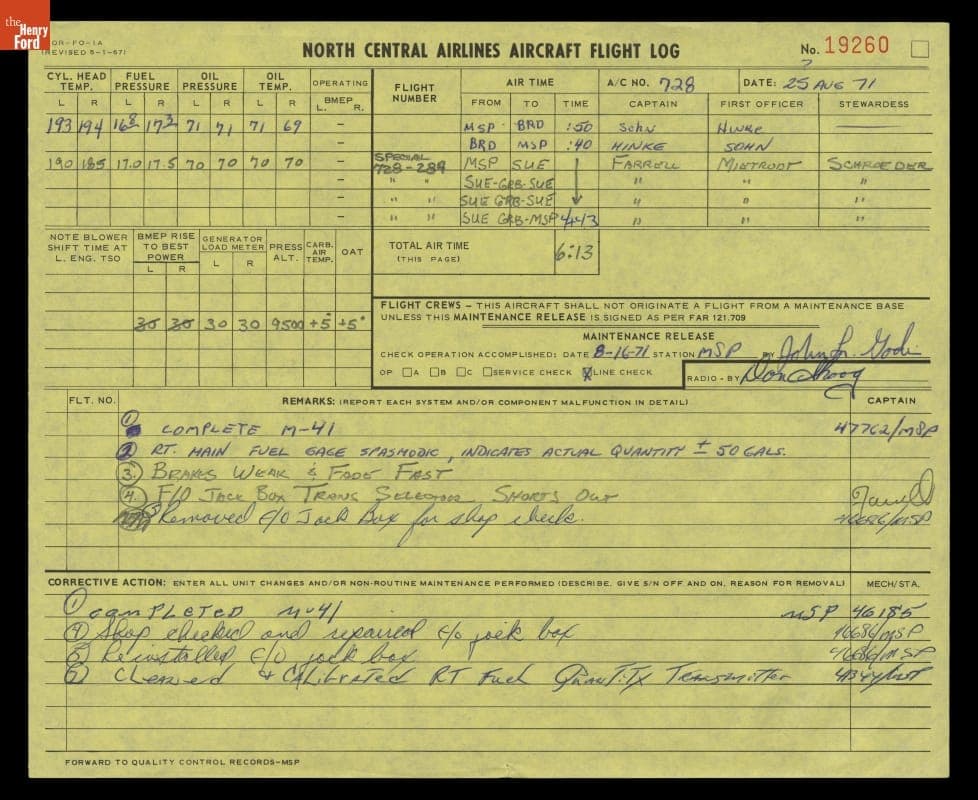 the Henry Ford
OR-FO-1A
(REVISED 5-1-67)
NORTH CENTRAL AIRLINES AIRCRAFT FLIGHT LOG
No. 19260
CYL. HEAD TEMP. FUEL PRESSURE OIL PRESSURE OIL TEMP. OPERATING BMEP
L R L R L R L R L. R.
FLIGHT NUMBER AIR TIME A/C NO. 728 DATE: 25 AUG 71
FROM TO TIME CAPTAIN FIRST OFFICER STEWARDESS
193 194 16.8 17.3 71 71 71 69 - MSP BRD :50 SOHN HINKE
- BRD MSP :40 HINKE SOHN
190 185 17.0 17.5 70 70 70 70 - SPECIAL 728-289 MSP SUE FARRELL SCHROEDER
- " " SUE-GRB-SUE " " "
- " " SUE GRB-SUE " " "
- " " SUE GRB-MSP 4:43 " " "
NOTE BLOWER SHIFT TIME AT L. ENG. TSO BMEP RISE TO BEST POWER L R GENERATOR LOAD METER L R PRESS ALT. CARB. AIR TEMP. OAT
TOTAL AIR TIME (THIS PAGE) 6:13
35 35 30 30 9500 +5° +5°
FLIGHT CREWS - THIS AIRCRAFT SHALL NOT ORIGINATE A FLIGHT FROM A MAINTENANCE BASE
UNLESS THIS MAINTENANCE RELEASE IS SIGNED AS PER FAR 121.709
MAINTENANCE RELEASE
CHECK OPERATION ACCOMPLISHED: DATE 8-16-71 STATION MSP BY John L.
OP A B C SERVICE CHECK X LINE CHECK RADIO - BY Don
FLT. NO. REMARKS: (REPORT EACH SYSTEM AND/OR COMPONENT MALFUNCTION IN DETAIL) CAPTAIN
1 COMPLETE M-41 47762/MSP
2 RT. MAIN FUEL GAGE SPASMODIC, INDICATES ACTUAL QUANTITY ± 50 GALS.
3. BRAKES WEAK & FADE FAST
4. F/O JACK BOX TRANS SELECTOR SHORTS OUT Farrell
5 Removed F/O Jack Box for shop check. 46686/MSP
CORRECTIVE ACTION: ENTER ALL UNIT CHANGES AND/OR NON-ROUTINE MAINTENANCE PERFORMED (DESCRIBE, GIVE S/N OFF AND ON, REASON FOR REMOVAL) MECH/STA.
1 COMPLETED M-41 MSP 46185
4 Shop checked and repaired F/O jack box 46686/MSP
5 Reinstalled F/O jack box 46686/MSP
2 Cleaned & CALIBRATED RT Fuel QUANTITY Transmitter
FORWARD TO QUALITY CONTROL RECORDS-MSP